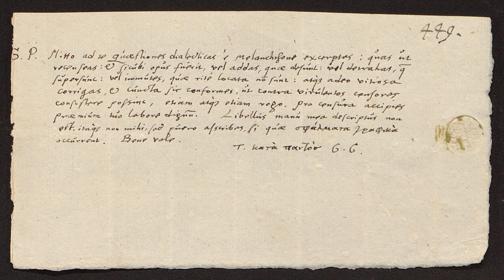 449.
S. P. Mitto ad te quæstiones dialecticas è Melanchthone excerptas: quas ut
recenseas: et sicubi opus fuerit, vel addas, quæ desunt: vel detrahas, q
supersunt: vel immutes, quæ ritè locata nõ sunt: atq; adeo vitiosa
corrigas, et cuncta sic conformes, ut contra virulentos censores
consistere possint, etiam atq; etiam rogo. pro censura accipies
præmium tuo labore dignũ. Libellus manu mea descriptus non
est. itaq; non mihi, sed puero ascribes, si quæ σφάλματα γραφικὰ
occurrent. Bene vale.
T. κατὰ παντὸς G. C.